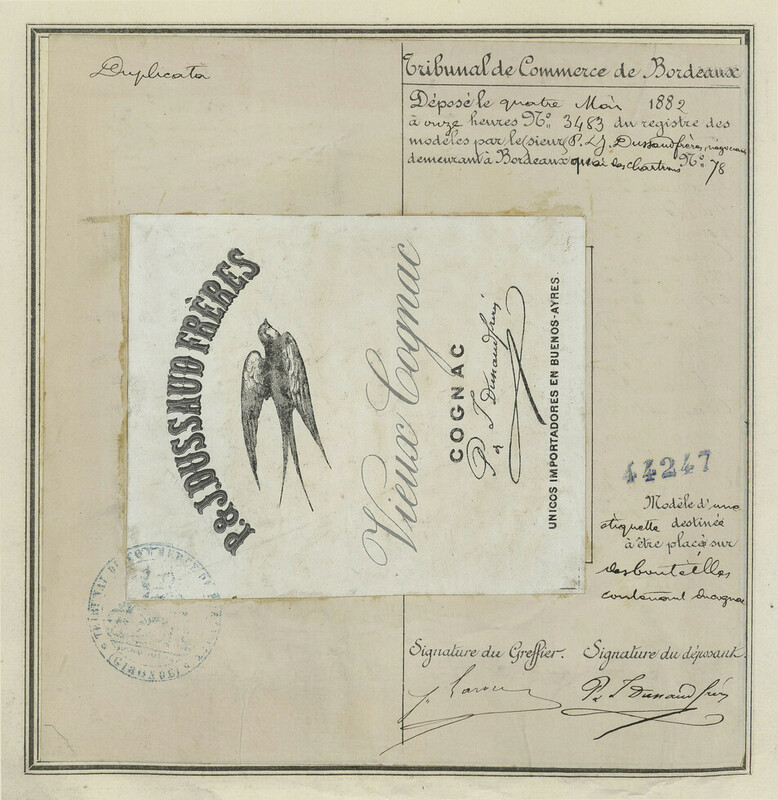 Duplicata
Tribunal de Commerce de Bordeaux
Déposé le quatre Mai 1882
à onze heures No. 3483 du registre des
modèles par le sieur P. & J. Dussaud frères, négociants
demeurant à Bordeaux quai des Chartrons No. 78
P. & J. DUSSAUD FRÈRES
Vieux Cognac
COGNAC
P & J Dussaud frères
UNICOS IMPORTADORES EN BUENOS-AYRES.
44247
Modèle d'une
étiquette destinée
à être placé sur
des bouteilles
contenant du cognac
TRIBUNAL DE COMMERCE DE
(GIRONDE)
Signature du Greffier. Signature du déposant.
P & J Dussaud frères